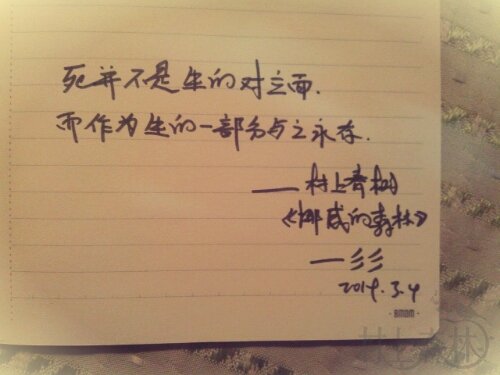 死并不是生的对立面.
而作为生的一部分与之永存.
——村上春树
《挪威的森林》
—彡彡
2014.3.4